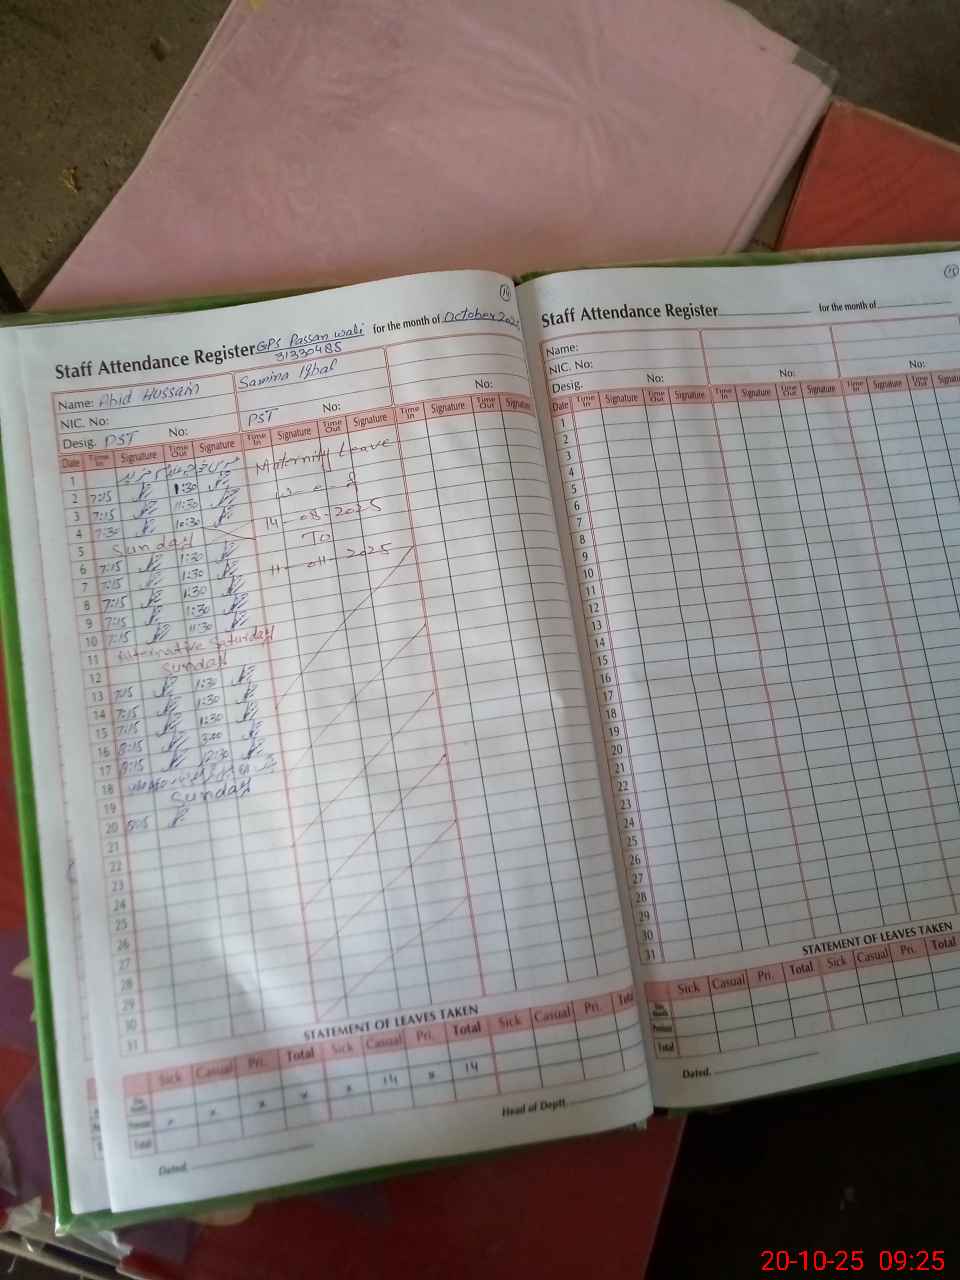 14
Staff Attendance Register GPS Passan wali for the month of October 2025
31330485
Name: Abid Hussain Samina Iqbal
NIC. No: No: No:
Desig. PST No: PST
Date Time In Signature Time Out Signature Time In Signature Time Out Signature Time In Signature Time Out Signature
1 Maternity Leave
2 7:15 1:30 w-e-f
3 7:15 11:30
4 7:30 10:30 14-08-2025
5 Sunday To
6 7:15 1:30 11-011-2025
7 7:15 1:30
8 7:15 1:30
9 7:15 1:30
10 7:15 11:30
11 Alternative Saturday
12 Sunday
13 7:15 1:30
14 7:15 1:30
15 7:15 1:30
16 8:15 3:00
17 8:15 12:30
18
19 Sunday
20
21
22
23
24
25
26
27
28
29
30
31
STATEMENT OF LEAVES TAKEN
Sick Casual Pri. Total Sick Casual Pri. Total Sick Casual Pri. Total
x x x x x 14 x 14
Previous
Total
Head of Deptt.
Dated.
15
Staff Attendance Register for the month of
Name:
NIC. No: No: No:
Desig. No:
Date Time In Signature Time Out Signature Time In Signature Time Out Signature Time In Signature Time Out Signature
1
2
3
4
5
6
7
8
9
10
11
12
13
14
15
16
17
18
19
20
21
22
23
24
25
26
27
28
29
30
31
STATEMENT OF LEAVES TAKEN
Sick Casual Pri. Total Sick Casual Pri. Total
Previous
Total
Dated.
20-10-25 09:25